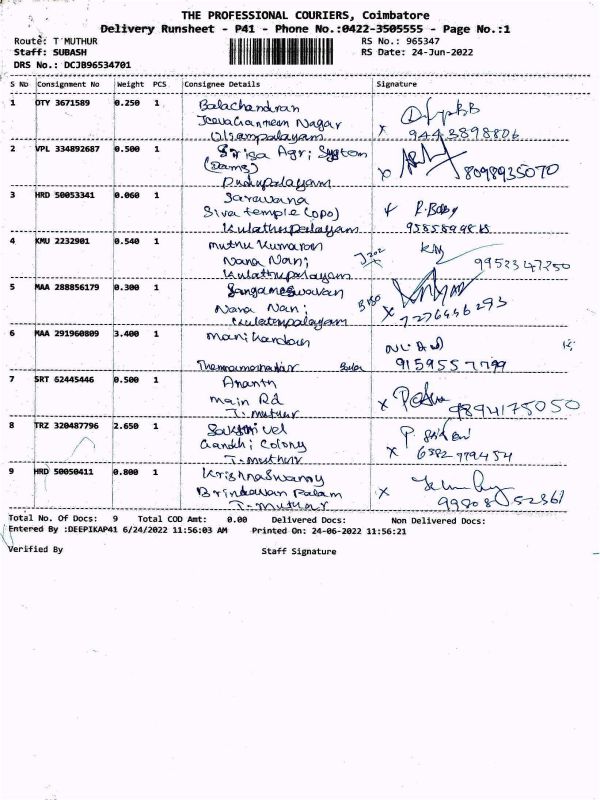 THE PROFESSIONAL COURIERS, Coimbatore
Delivery Runsheet - P41 - Phone No.:0422-3505555 - Page No.:1
Route: T MUTHUR RS No.: 965347
Staff: SUBASH RS Date: 24-Jun-2022
DRS No.: DCJB96534701
S No Consignment No Weight PCS Consignee Details Signature
1 OTY 3671589 0.250 1 Balachandran
Jeeva Nagar
9443898806
2 VPL 334892687 0.500 1 Sirisa Agri System
(Dams) 8098935070
Pudupalayam
3 HRD 50053341 0.060 1 Saravana
Siva temple (opo) R. Baby
Kulathupalayam
4 KMU 2232901 0.540 1 Muthu Kumaran
Nana Nani J202 9952347250
Kulathupalayam
5 MAA 288856179 0.300 1 Sangameswaran
Nana Nani B150
Kulathupalayam 7276446293
6 MAA 291960809 3.400 1 Manikandan
9159557799
7 SRT 62445446 0.500 1 Ananth
Main Rd 9894175050
T. Muthur
8 TRZ 320487796 2.650 1 Sakthivel
Gandhi Colony
T. Muthur 6382779454
9 HRD 50050411 0.800 1 Krishnaswamy
Brindavan Palam
T. Muthur 9980852361
Total No. Of Docs: 9 Total COD Amt: 0.00 Delivered Docs: Non Delivered Docs:
Entered By :DEEPIKAP41 6/24/2022 11:56:03 AM Printed On: 24-06-2022 11:56:21
Verified By Staff Signature